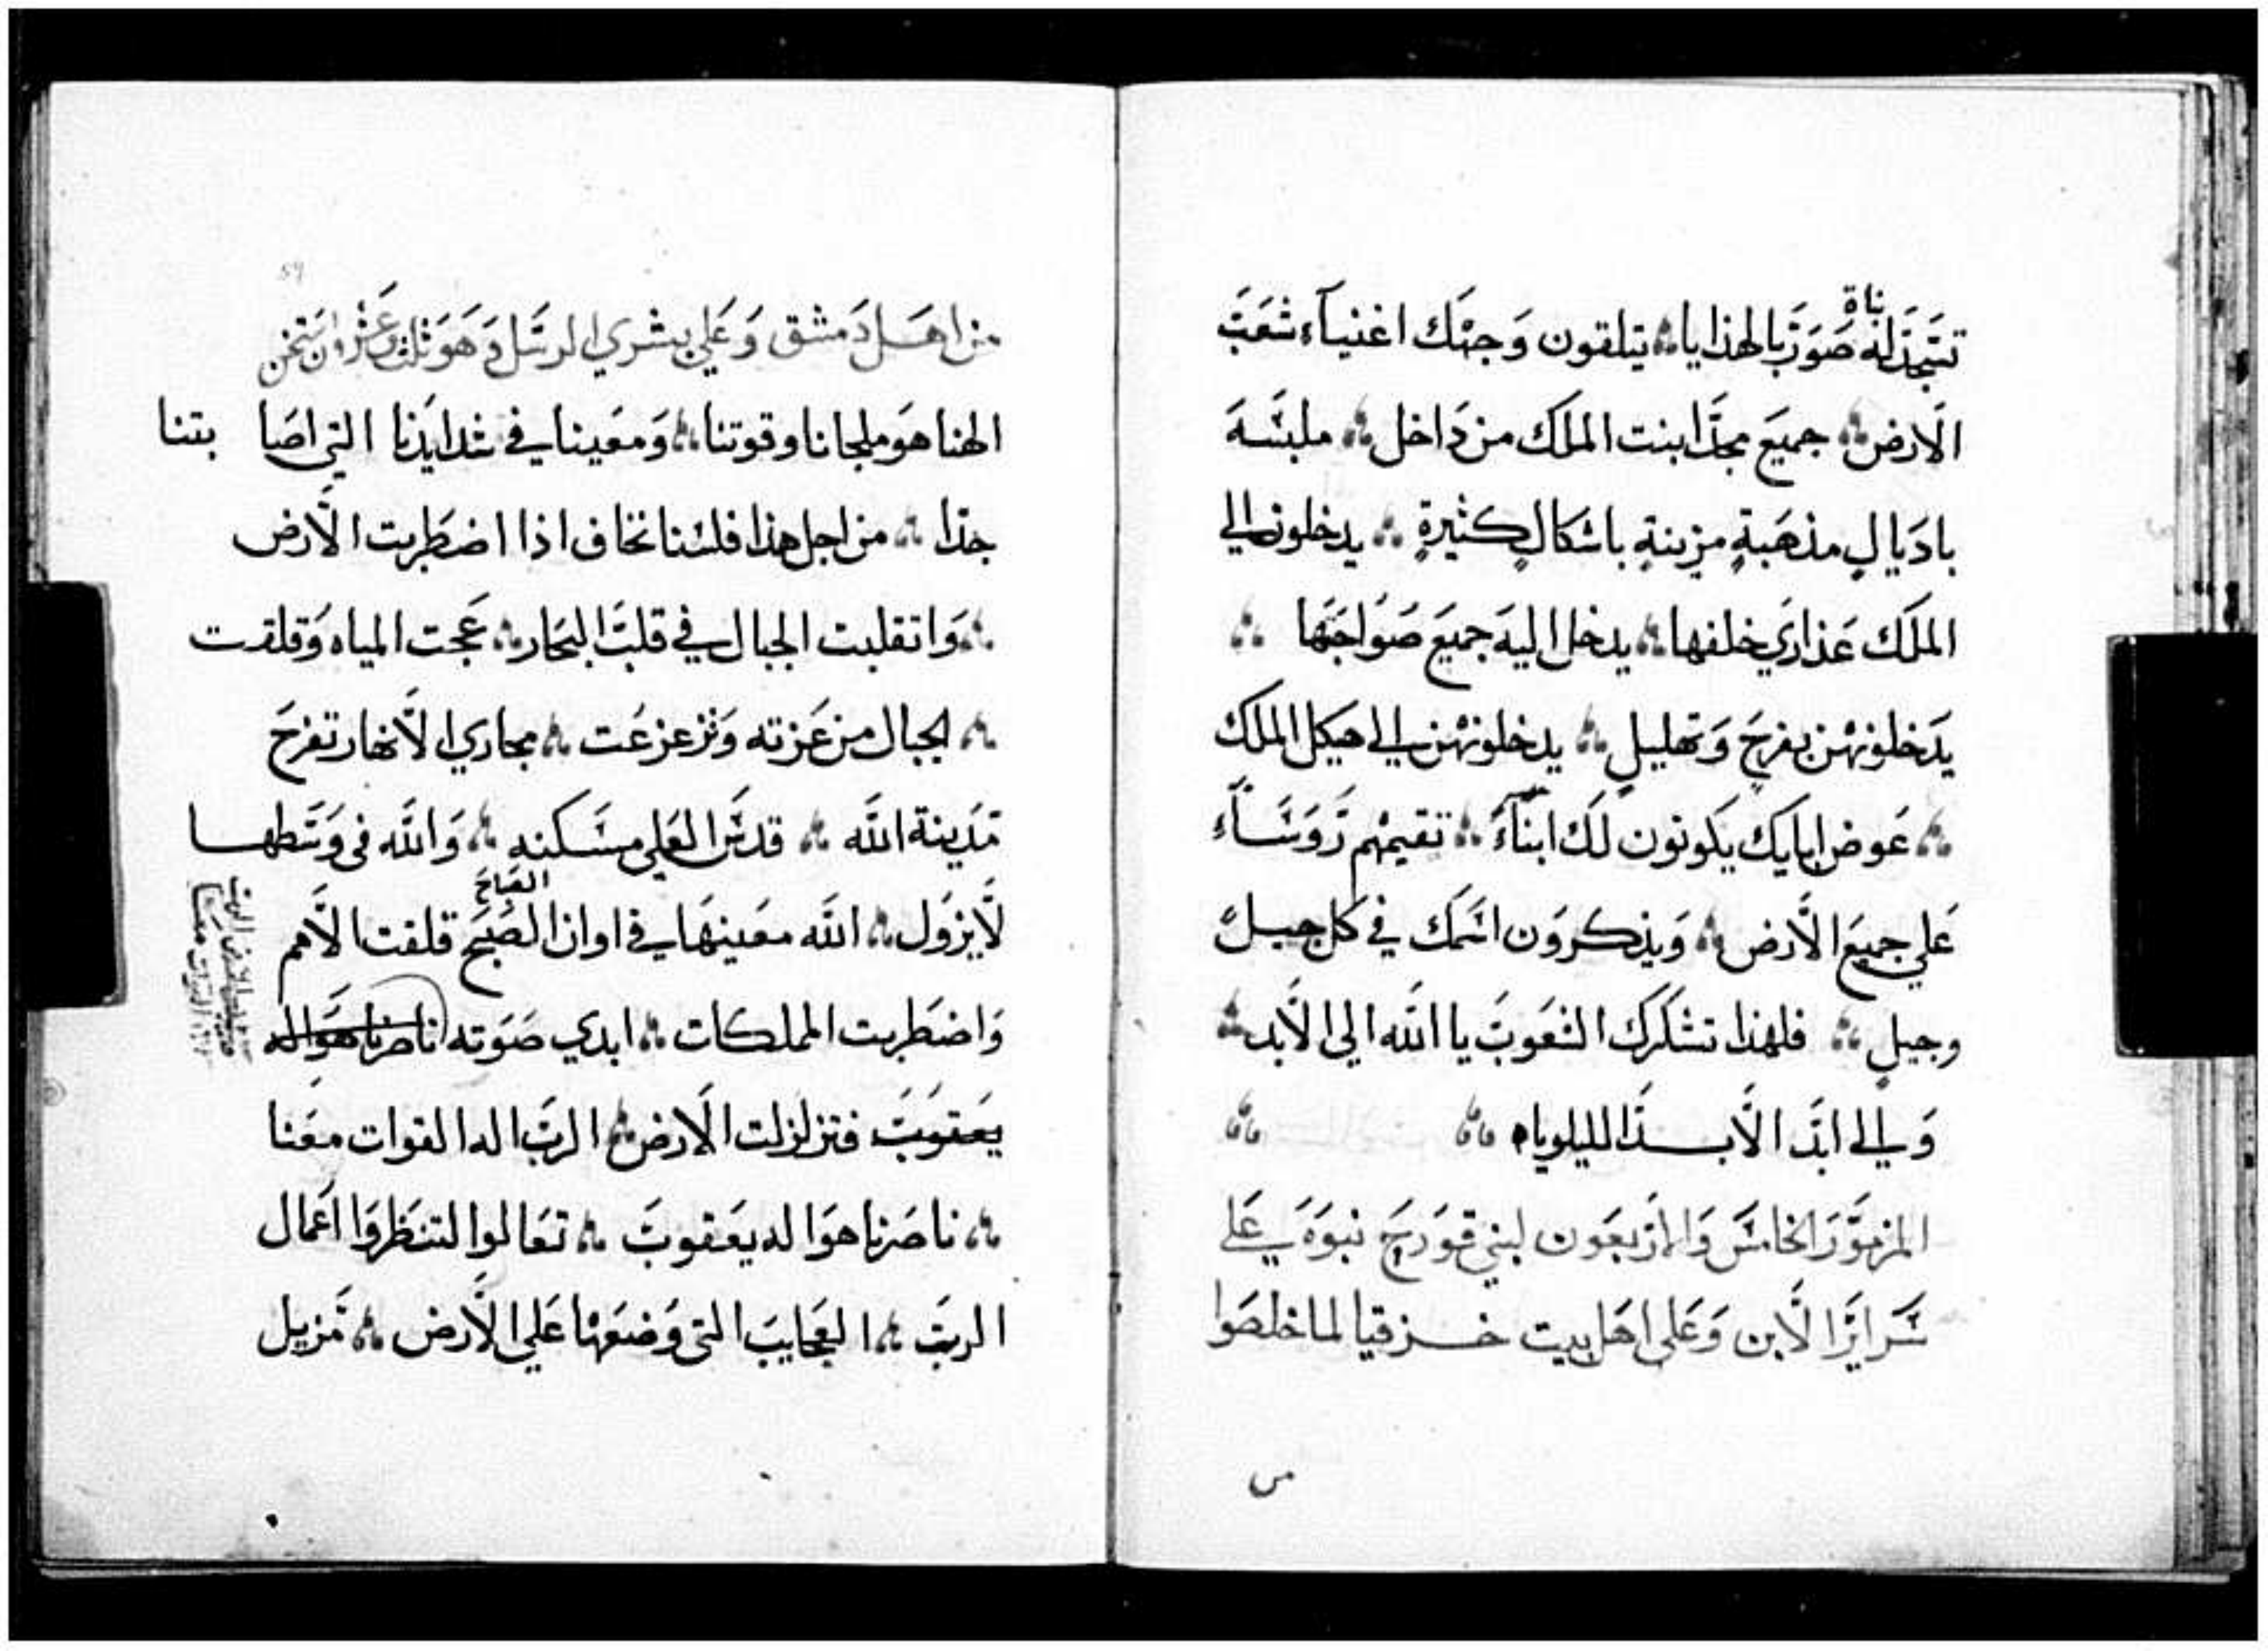 تسجد له بناة صور بالهدايا يتلقون وجهك اغنياء شعب
الارض جميع مجد ابنت الملك من داخل ملبسه
باديال مذهبة مزينة باشكال كثيرة يدخلون الي
الملك عذاري خلفها يدخل اليه جميع صواحبها
يدخلونهن بفرح وتهليل يدخلونهن الي هيكل الملك
عوض ابايك يكونون لك ابناء تقيمهم روساء
علي جميع الارض ويذكرون اسمك في كل جيل
وجيل فلهذا تشكرك الشعوب يا الله الي الابد
والي ابد الابد الليلوياه
المزمور الخامس والاربعون لبني قورح نبوه علي
سراير الابن وعلي اهل بيت حزقيا لما خلصوا
من اهل دمشق وعلي بشري الرسل وهو ثلث وعشرون ستخن
الهنا هو ملجانا وقوتنا ومعينا في شدايدنا التي اصابتنا
جدا من اجل هذا فلسنا نخاف اذا اضطربت الارض
وانقلبت الجبال في قلب البحار عجت المياه وقلقت
الجبال من عزته وتزعزعت مجاري الانهار تفرح
مدينة الله قدس العلي مسكنه والله في وسطها
لايزول الله معينها في اوان الصبح الصباح قلقت الامم
واضطربت المملكات ابدي صوته ناصرنا هو اله
يعقوب فتزلزلت الارض الرب اله القوات معنا
ناصرنا هو اله يعقوب تعالوا لتنظروا اعمال
الرب العجايب التي وضعها علي الارض مزيل